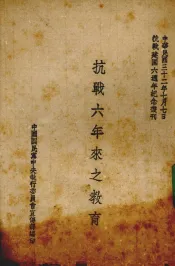 中華民國三十二年七月七日
抗戰建國六週年紀念叢刊
抗戰六年來之教育
中國國民黨中央執行委員會宣傳部編印